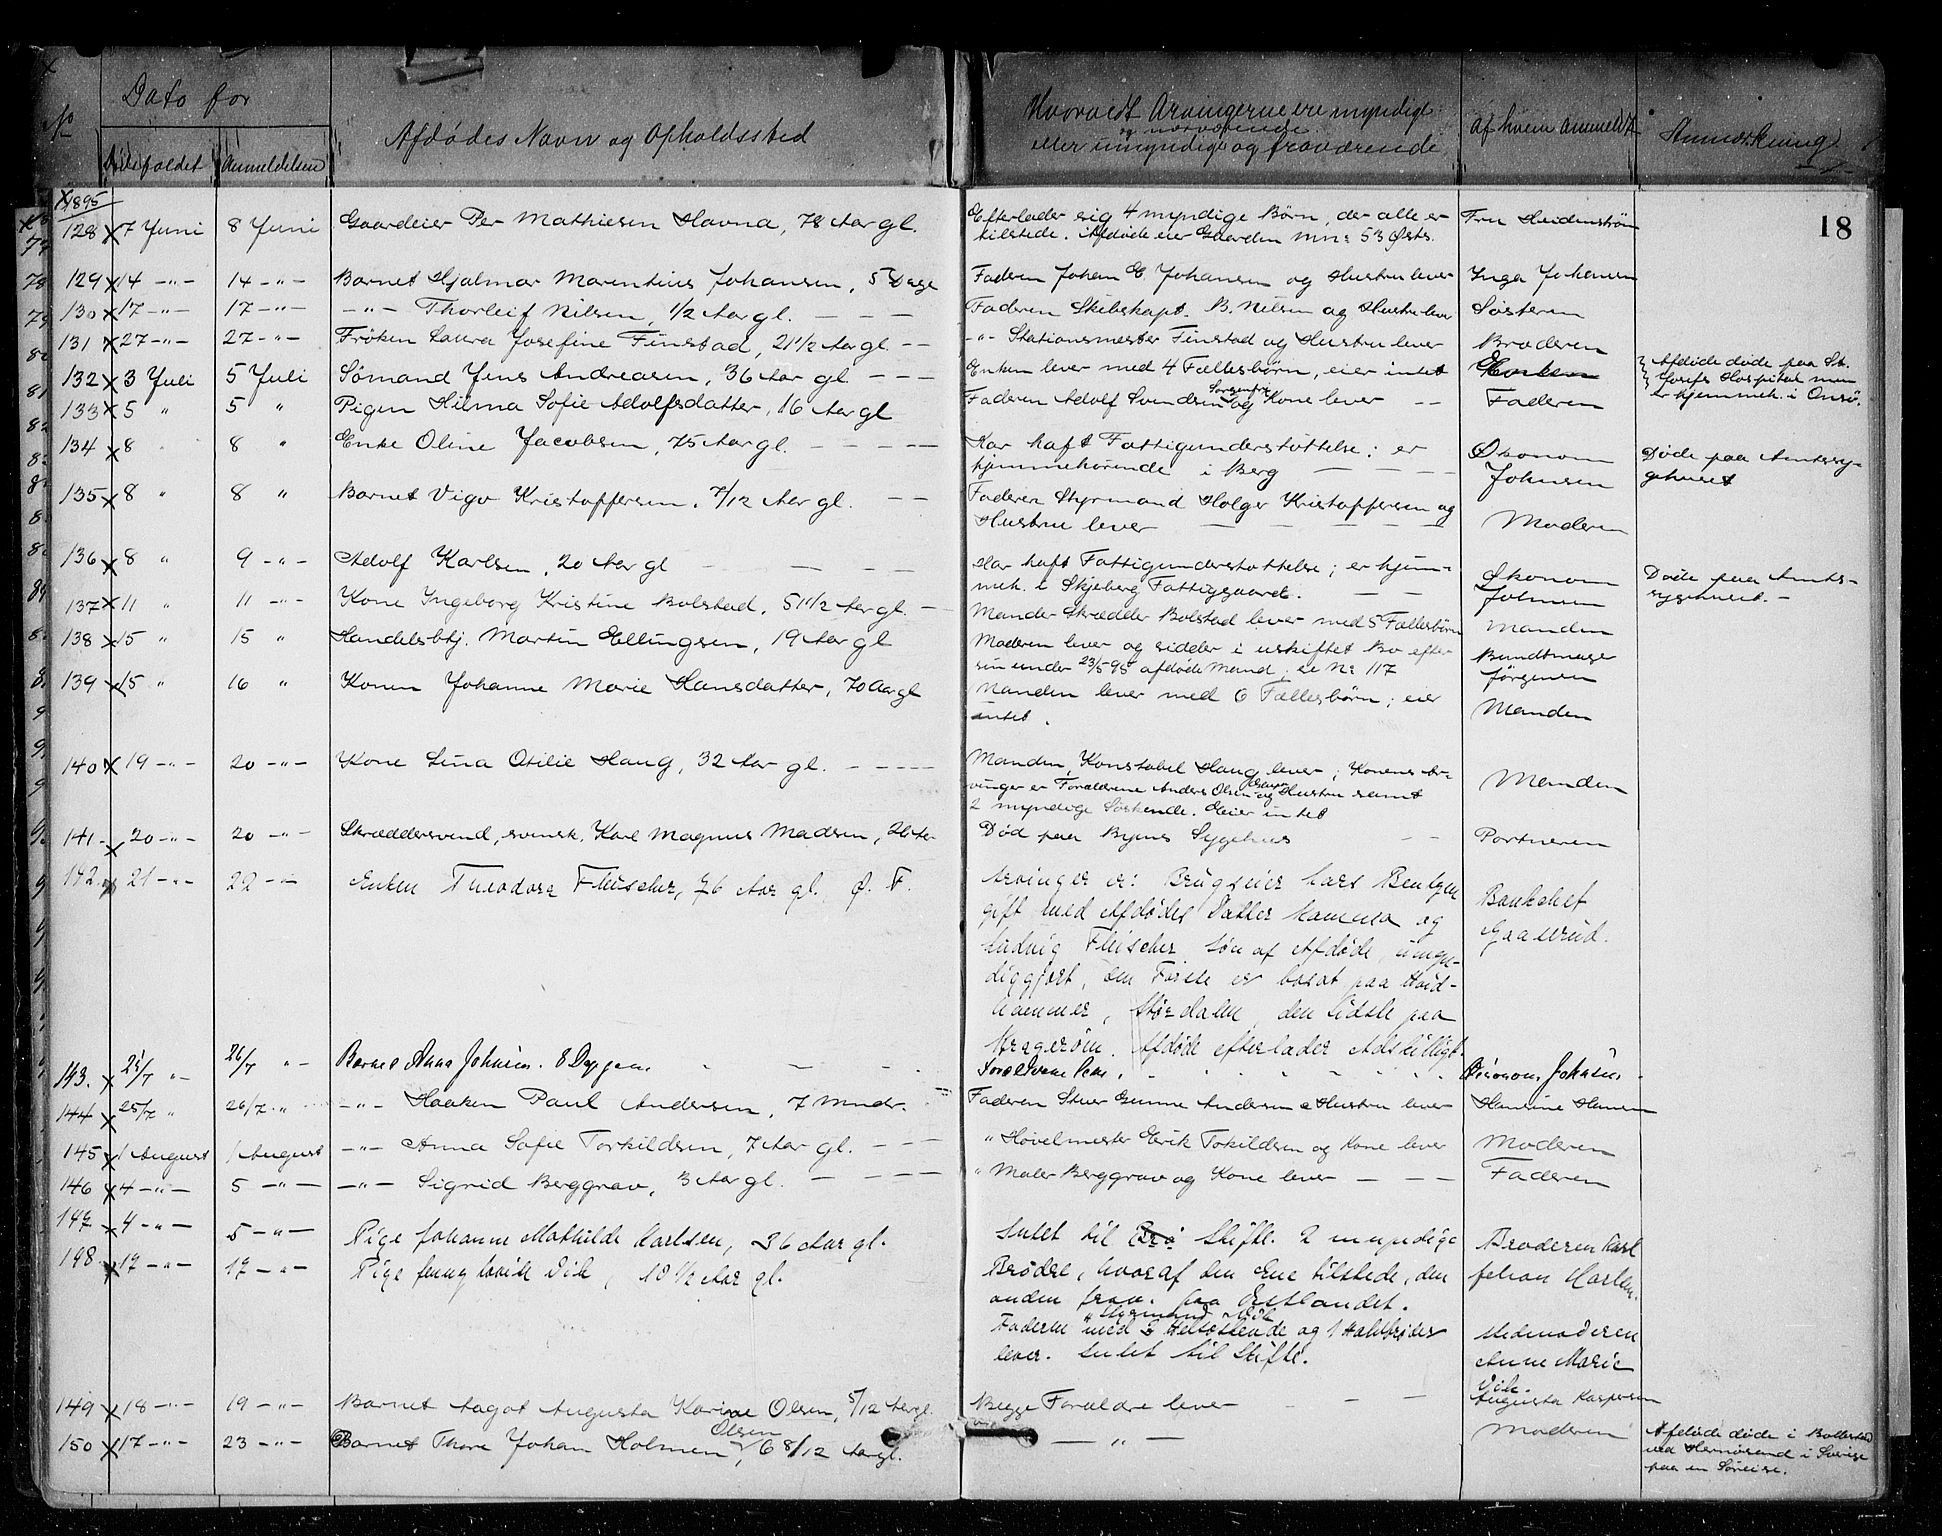 No
Dato for
Dødsfaldet
Anmeldelsen
Afdødes Navn og Opholdssted
Hvorvidt Arvingerne ere myndige
og nærværende
eller umyndige og fraværende
af hvem anmeldt
Anmærkning
18
1895
128 7 Juni 8 Juni Gaardeier Per Mathiesen Havna, 78 Aar gl. Efterlader sig 4 myndige Børn, der alle er Fru Heidenstrøm
tilstede. Afdøde eier Gaarden mn: 53 Østs.
129 14 -"- 14 -"- Barnet Hjalmar Marentius Johansen, 5 Dage Faderen Johan E Johansen og Hustru lever Inga Johansen
130 17 -"- 17 -"- -"- Thorleif Nilsen, 1/2 Aar gl. Faderen Skibskapt. B. Nilsen og Hustru lever Søsteren
131 27 -"- 27 -"- Frøken Laura Josefine Finstad, 21 1/2 Aar gl. -"- Stationsmester Finstad og Hustru lever Broderen
132 3 Juli 5 Juli Sømand Jens Andreasen, 36 Aar gl Enken lever med 4 Fællesbørn, eier intet Enken Afdøde døde paa St.
Josefs Hospital men
er hjemmeh. i Onsø.
133 5 " 5 " Pigen Hilma Sofie Adolfsdatter, 16 Aar gl Faderen Adolf Svendsen Sorgenfri og Kone lever Faderen
134 8 8 " Enke Oline Jacobsen, 75 Aar gl. Har haft Fattigunderstøttelse; er Økonom Døde paa Amtssy-
hjemmehørende i Berg Johnsen gehuset
135 8 " 8 " Barnet Vigo Kristoffersen, 7/12 Aar gl. Faderen Styrmand Holger Kristoffersen og
Hustru lever Moderen
136 8 " 9 -"- Adolf Karlsen, 20 Aar gl Har haft Fattigunderstøttelse; er hjem- Økonom Døde paa Amts-
meh. i Skjeberg Fattiggaard. Johnsen sygehuset.
137 11 " 11 -"- Kone Ingeborg Kristine Bolstad, 51 1/2 Aar gl. Manden Skrædder Bolstad lever med 5 Fællesbørn Manden
138 15 " 15 " Handelsbtj. Martin Ellingsen, 19 Aar gl Moderen lever og sidder i uskiftet Bo efter Bundtmager
sin under 23/5 95 afdøde Mand; se No 117 Jørgensen
139 15 " 16 " Konen Johanne Marie Hansdatter, 70 Aar gl Manden lever med 6 Fællesbørn; eier Manden
intet.
140 19 -"- 20 -"- Kone Lina Otilie Haug, 32 Aar gl. Manden, Konstabel Haug lever; Konens Ar- Manden
vinger er Forældrene Anders Olsen og Hustru samt
2 myndige Søskende. Eier intet
141 20 -"- 20 -"- Skræddersvend, svensk, Karl Magnus Madsen, Død paa Byens Sygehus Portneren
142 21 -"- 22 -"- Enken Theodora Fleischer, 76 Aar gl. Ø. F. Arvinger er: Brugseier Lars Bentzen Bankchef
gift med Afdødes Datter Hanna og Gaasrud.
Ludvig Fleischer, Søn af Afdøde, umyn-
diggjort, den Første er bosat paa Hvid-
hammer, Størdalen, den Sidste paa
Kragerøen. Afdøde efterlader Adskilligt.
143. 25/7 " 26/7 " Barnet Anna Johnsen. 8 Dage gam. Forældrene lever. Økonom Johnsen
144 25/7 " 26/7 " -"- Haaken Paul Andersen, 7 Mndr. Faderen Stuer Gunne Andersen & Hustru lever Hansine Hansen
145 1 August 1 August -"- Anna Sofie Torkildsen, 7 Aar gl. " Høvelmester Erik Tokildsen og Kone lever Moderen
146 4 -"- 5 -"- -"- Sigrid Berggrav, 3 Aar gl. " Maler Berggrav og Kone lever Faderen
147 4 -"- 5 -"- Pige Johanne Mathilde Karlsen, 36 Aar gl. Intet til Bro Skifte. 2 myndige Broderen Karl
Brødre, hvoraf den Ene tilstede, den Johan Karlsen.
anden frav. paa Østlandet.
148 17 -"- 17 -"- Pige Jenny Lovise Vik, 18 1/2 Aar gl.
Styrmand Vik
Faderen med 3 Helsøskende og 1 Halvbroder Stedmoderen
lever. Intet til Skifte. Anne Marie
Vik.
149 18 -"- 19 -"- Barnet Aagot Augusta Karine Olsen, 5/12 Aar gl. Begge Forældre lever Augusta Kaspersen
150 17 -"- 23 -"- Barnet Thore Johan Holmen Olsen, 6 8/12 Aar gl. -"- Moderen Afdøde døde i
ved Hernøsand i Sverige
paa en Søreise.